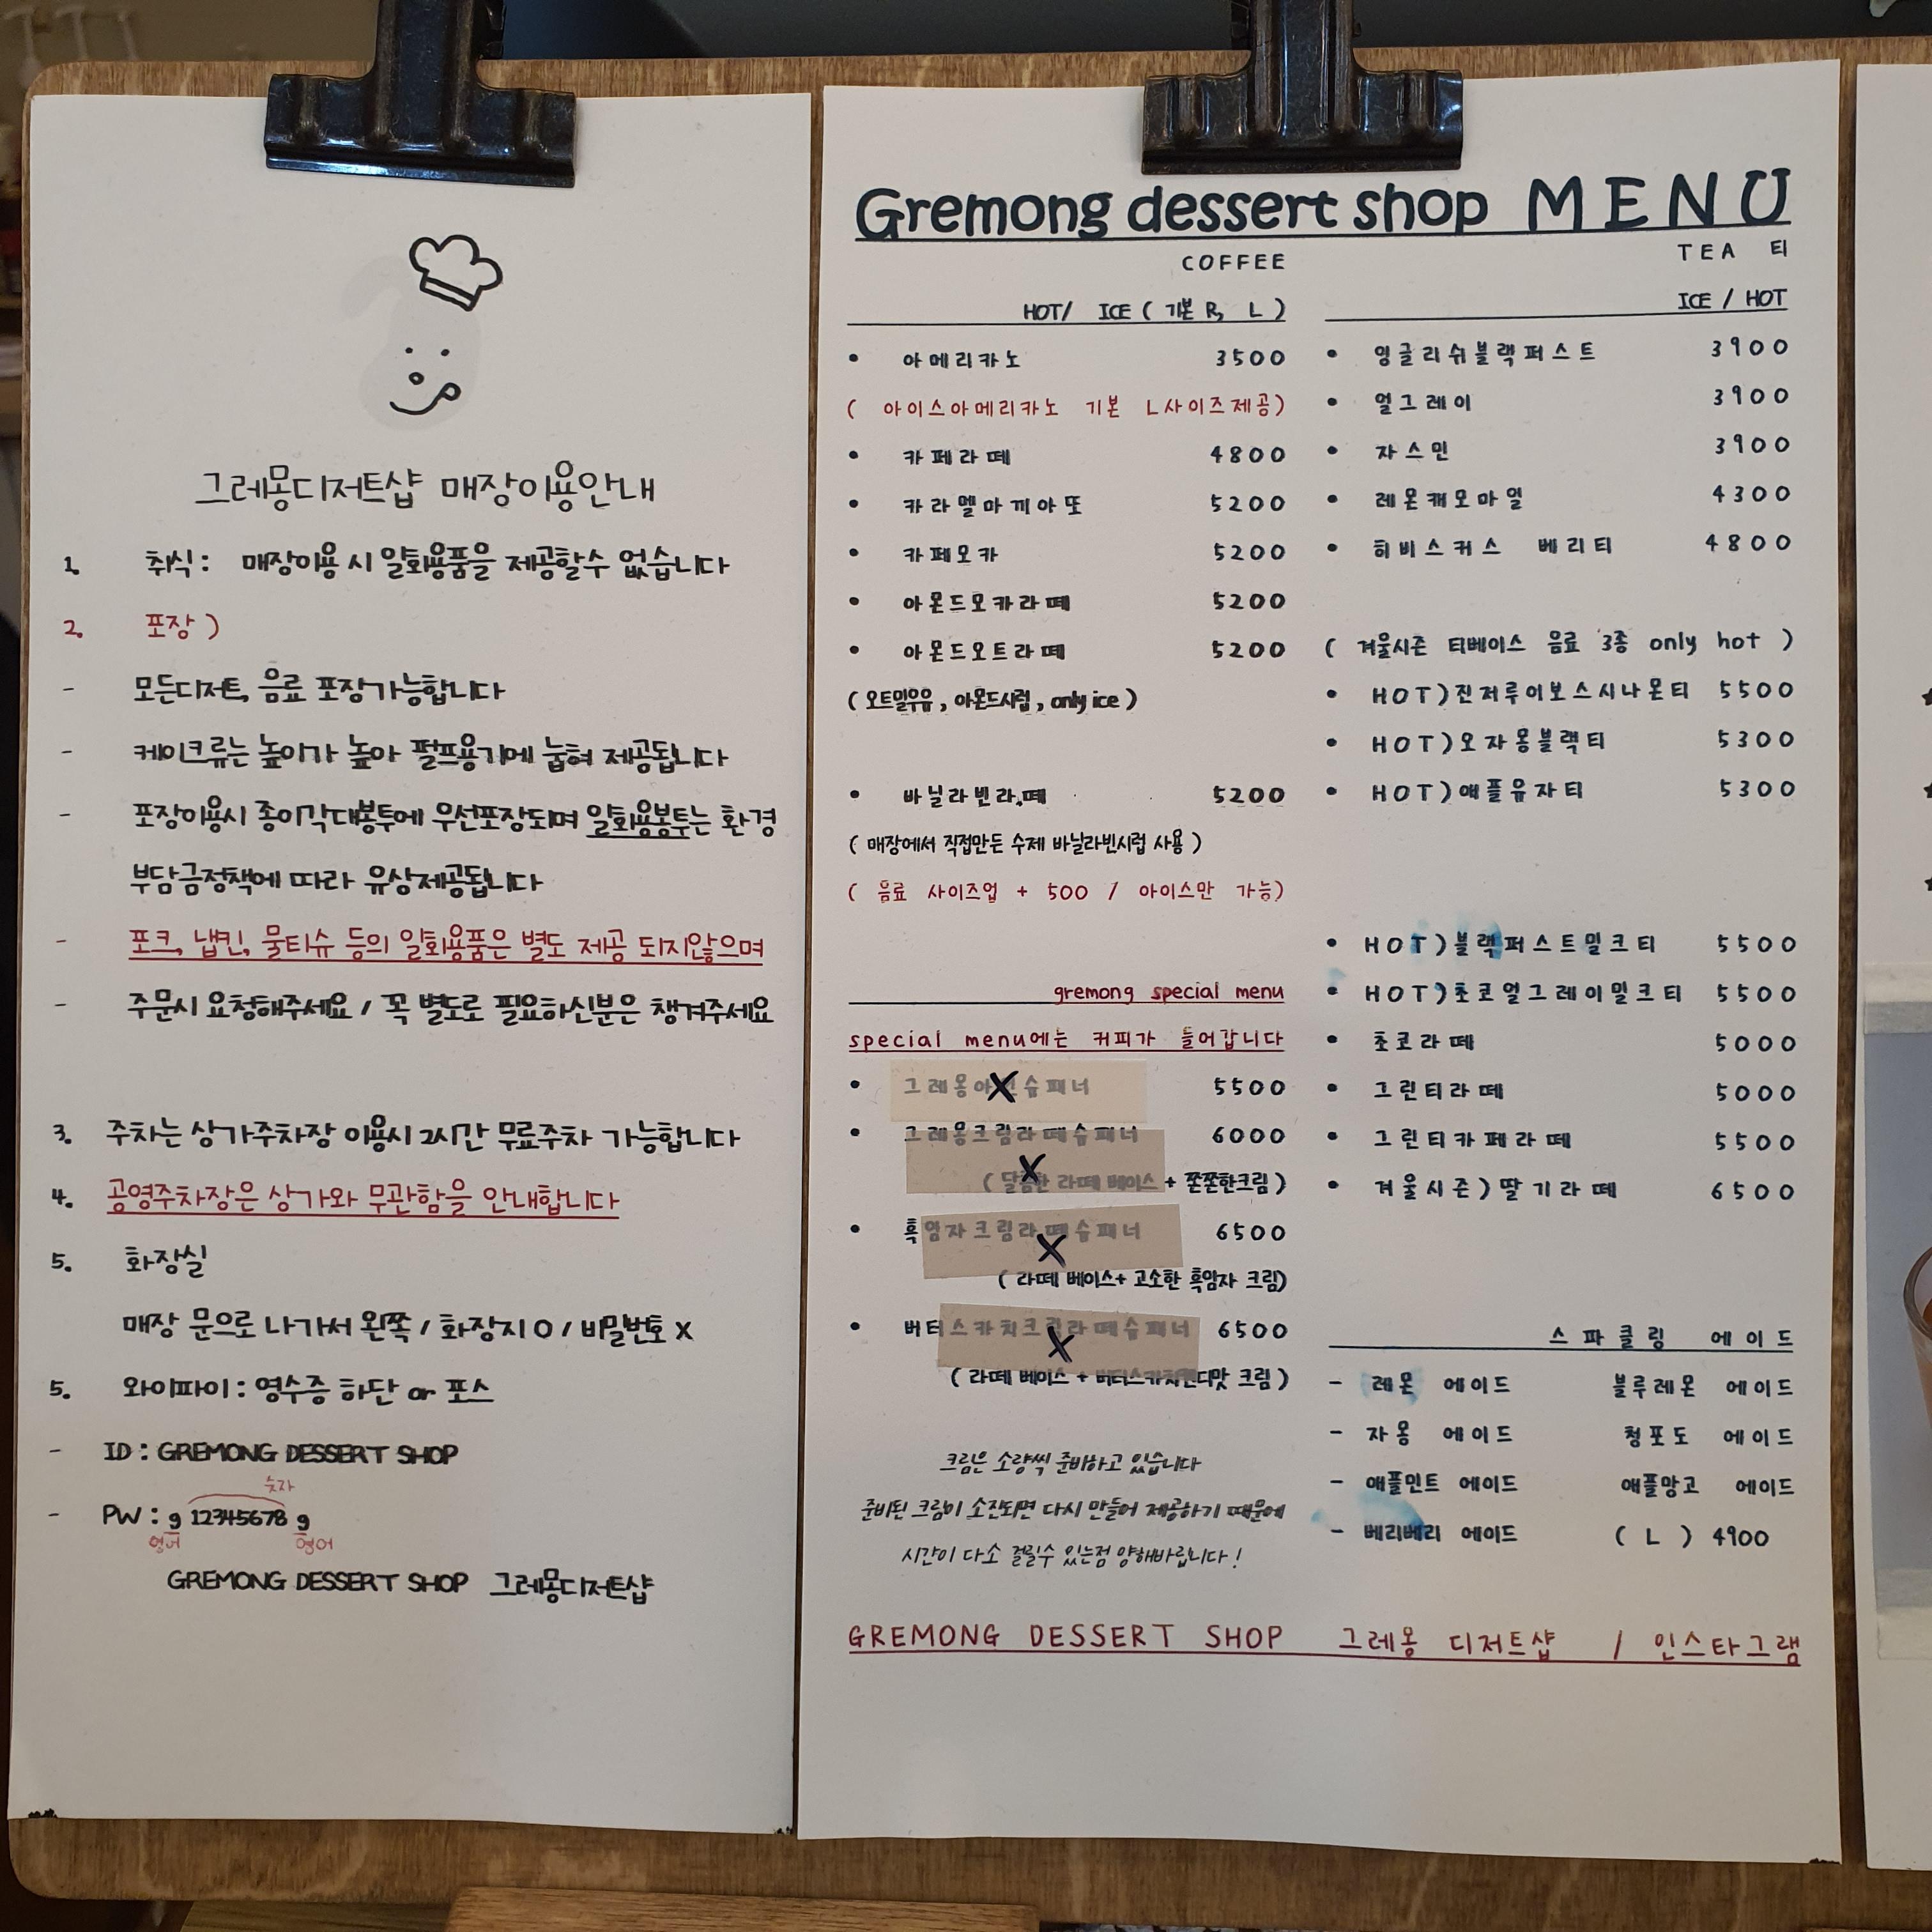 그레몽디저트샵 매장이용안내
1. 취식 : 매장이용 시 일회용품을 제공할수 없습니다
2. 포장 )
- 모든디저트, 음료 포장가능합니다
- 케이크류는 높이가 높아 펄프용기에 눕혀 제공됩니다
- 포장이용시 종이각대봉투에 우선포장되며 일회용봉투는 환경
부담금정책에 따라 유상제공됩니다
- 포크, 냅킨, 물티슈 등의 일회용품은 별도 제공 되지않으며
- 주문시 요청해주세요 / 꼭 별도로 필요하신분은 챙겨주세요
3. 주차는 상가주차장 이용시 2시간 무료주차 가능합니다
4. 공영주차장은 상가와 무관함을 안내합니다
5. 화장실
매장 문으로 나가서 왼쪽 / 화장지 O / 비밀번호 X
5. 와이파이 : 영수증 하단 or 포스
- ID : GREMONG DESSERT SHOP
숫자
- PW : g 12345678 g
영어 영어
GREMONG DESSERT SHOP 그레몽디저트샵
Gremong dessert shop MENU
COFFEE
HOT/ ICE ( 기본 R, L )
• 아메리카노 3500
( 아이스아메리카노 기본 L사이즈제공)
• 카페라떼 4800
• 카라멜마끼아또 5200
• 카페모카 5200
• 아몬드모카라떼 5200
• 아몬드오트라떼 5200
( 오트밀우유 , 아몬드시럽 , only ice )
• 바닐라빈라떼 5200
( 매장에서 직접만든 수제 바닐라빈시럽 사용 )
( 음료 사이즈업 + 500 / 아이스만 가능)
gremong special menu
special menu에는 커피가 들어갑니다
• 그레몽아인슈패너 5500
• 그레몽크림라떼슈패너 6000
( 달콤한 라떼 베이스 + 쫀쫀한크림 )
• 흑임자크림라떼슈패너 6500
( 라떼 베이스+ 고소한 흑임자 크림)
• 버터스카치크림라떼슈패너 6500
( 라떼 베이스 + 버터스카치캔디맛 크림 )
크림은 소량씩 준비하고 있습니다
준비된 크림이 소진되면 다시 만들어 제공하기 때문에
시간이 다소 걸릴수 있는점 양해바랍니다 !
TEA 티
ICE / HOT
• 잉글리쉬블랙퍼스트 3900
• 얼그레이 3900
• 자스민 3900
• 레몬캐모마일 4300
• 히비스커스 베리티 4800
( 겨울시즌 티베이스 음료 3종 only hot )
• HOT)진저루이보스시나몬티 5500
• HOT)오자몽블랙티 5300
• HOT)애플유자티 5300
• HOT)블랙퍼스트밀크티 5500
• HOT)초코얼그레이밀크티 5500
• 초코라떼 5000
• 그린티라떼 5000
• 그린티카페라떼 5500
• 겨울시즌)딸기라떼 6500
스파클링 에이드
- 레몬 에이드 블루레몬 에이드
- 자몽 에이드 청포도 에이드
- 애플민트 에이드 애플망고 에이드
- 베리베리 에이드 ( L ) 4900
GREMONG DESSERT SHOP 그레몽 디저트샵 / 인스타그램